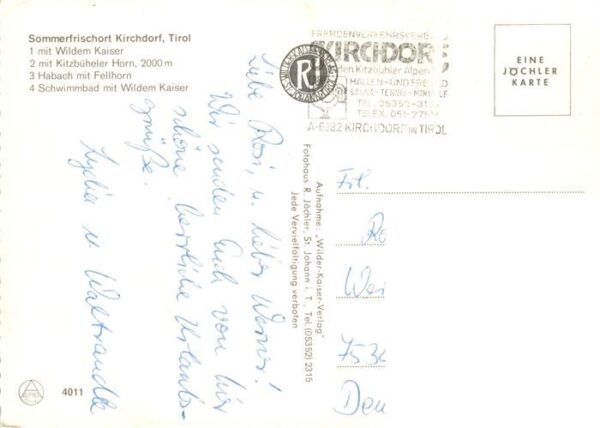 Sommerfrischort Kirchdorf, Tirol
1 mit Wildem Kaiser
2 mit Kitzbüheler Horn, 2000 m
3 Habach mit Fellhorn
4 Schwimmbad mit Wildem Kaiser
Liebe Rosi, u. lieber Werner!
Wir senden Euch von hier
schöne herrliche Urlaubs-
grüße.
Lydia u. Waltraudle
4011
Aufnahme: „Wilder-Kaiser-Verlag"
Fotohaus R. Jöchler, St. Johann i. T., Tel. (05352) 2315
Jede Vervielfältigung verboten
R
FREMDENVERKEHRSVERB
KIRCHDORF
den Kitzbühler Alpen
HALLEN-UND FREIBAD
SAUNA-TENNIS-MINIGOLF
TEL. 05352-31
TELEX. 051-275
A-6382 KIRCHDORF IN TIROL
EINE
JÖCHLER
KARTE
Frl.
Ro
Wei
Den